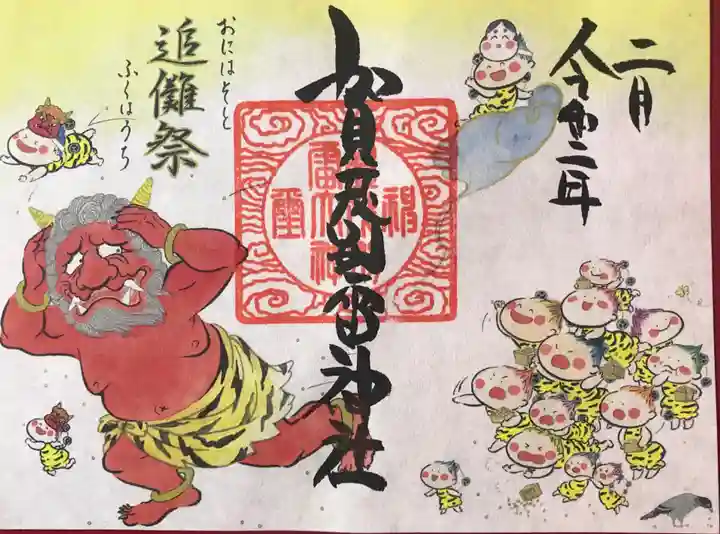 二月
令和二年
賀茂別雷神社
おにはそと
追儺祭
ふくはうち